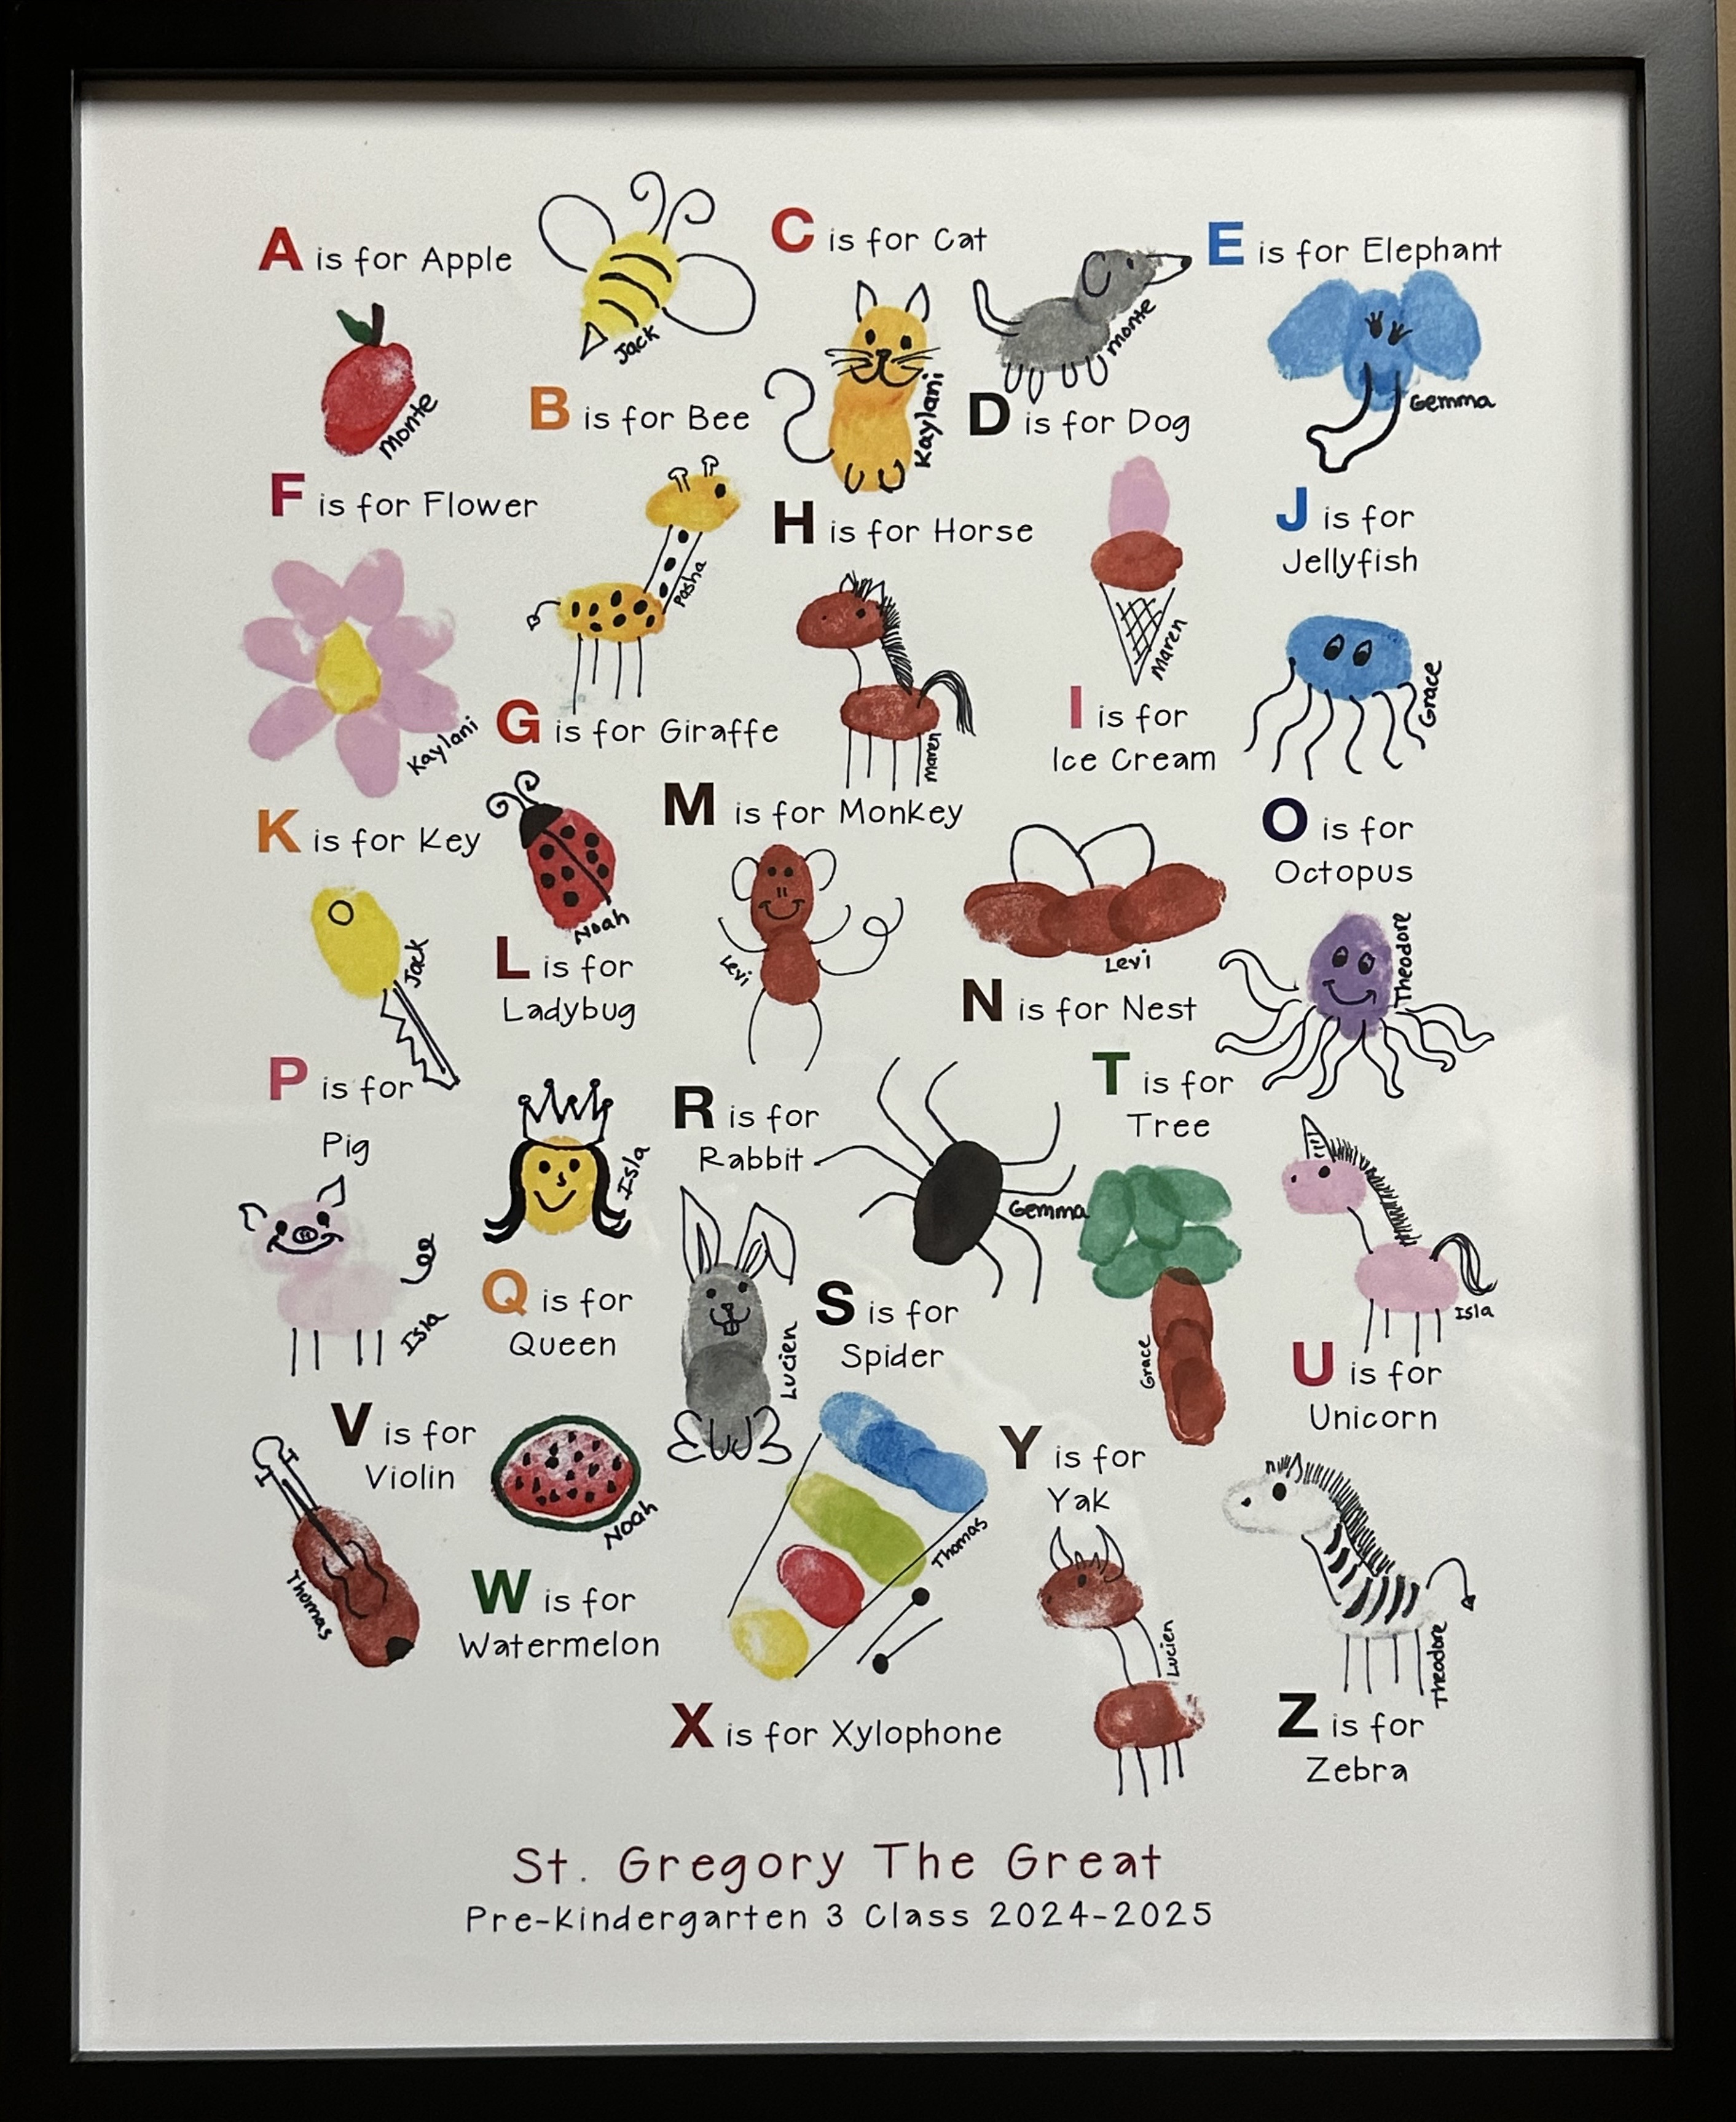 A is for Apple
Monte
Jack
B is for Bee
C is for Cat
Kaylani
Monte
D is for Dog
E is for Elephant
Gemma
F is for Flower
Kaylani
Pasha
G is for Giraffe
H is for Horse
Maren
Maren
I is for
Ice Cream
J is for
Jellyfish
Grace
K is for Key
Jack
Noah
L is for
Ladybug
M is for Monkey
Levi
Levi
N is for Nest
O is for
Octopus
Theodore
P is for
Pig
Isla
Isla
Q is for
Queen
R is for
Rabbit
Lucien
Gemma
S is for
Spider
T is for
Tree
Grace
Isla
U is for
Unicorn
V is for
Violin
Thomas
Noah
W is for
Watermelon
Thomas
X is for Xylophone
Y is for
Yak
Lucien
Theodore
Z is for
Zebra
St. Gregory The Great
Pre-Kindergarten 3 Class 2024-2025